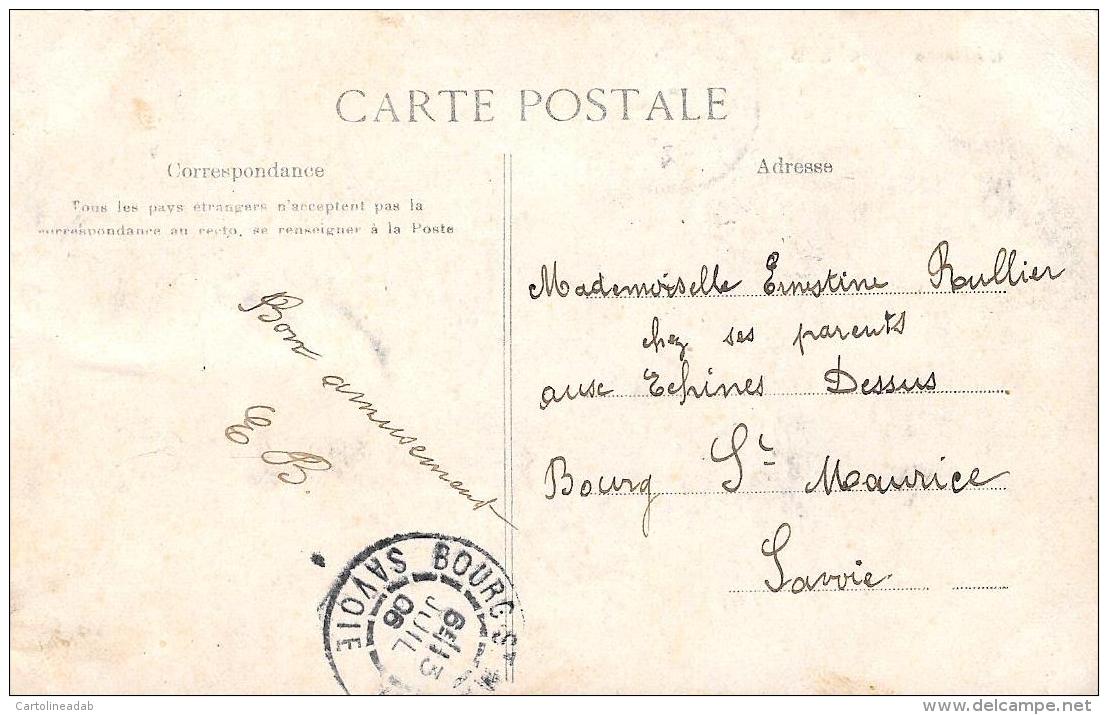 CARTE POSTALE
Correspondance
Tous les pays étrangers n'acceptent pas la
correspondance au recto, se renseigner à la Poste
Bon amusement
E B.
Adresse
Mademoiselle Ernestine Rullier
chez ses parents
aux Echines Dessus
Bourg St Maurice
Savoie
BOURG-ST-M
SAVOIE
JUIL
06
Cartolineadab
www.delcampe.net